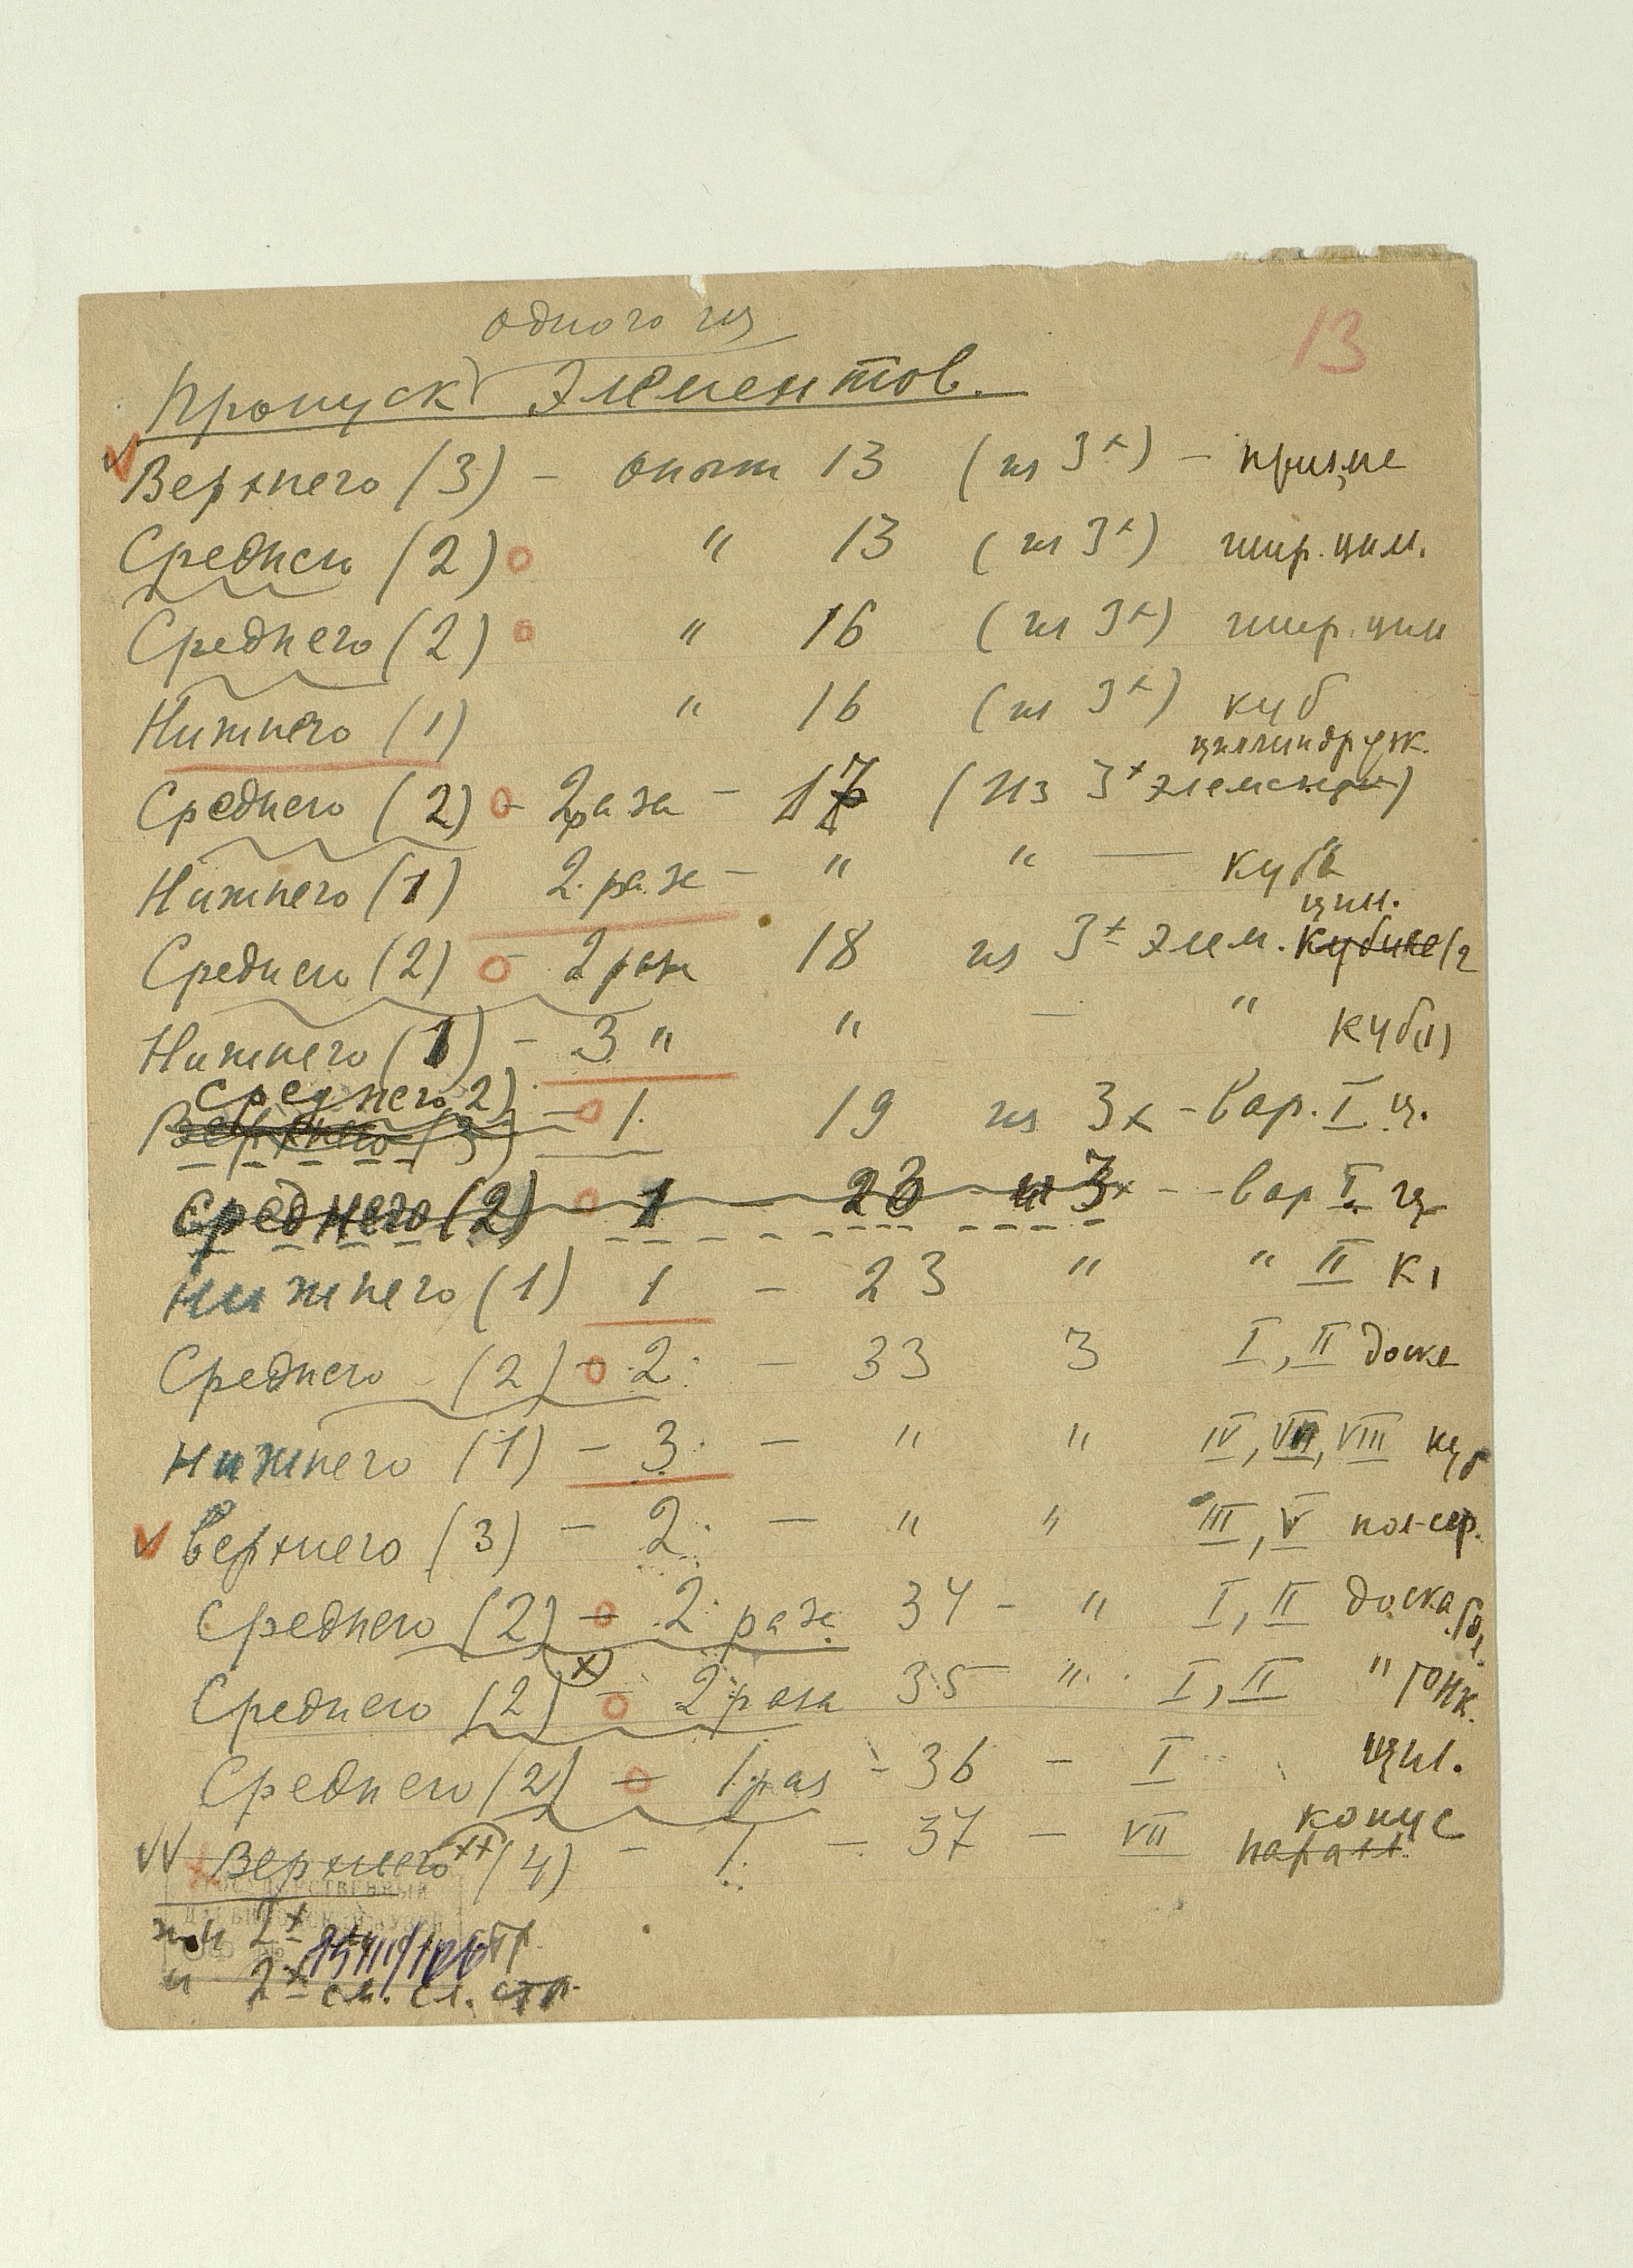 13
одного из
Пропуск элементов.
Верхнего (3) – опыт 13 (из 3х) – призме
Среднего (2) о " 13 (из 3х) шир. цил.
Среднего (2) о " 16 (из 3х) шир. цил
Нижнего (1) " 16 (из 3х) куб
цилиндр уж.
Среднего (2) о – 2 раза – 17 (Из 3х элементов)
Нижнего (1) 2 раза – " " — куба
цил.
Среднего (2) о – 2 раза 18 из 3х элем. кубике (2
Нижнего (1) – 3 " " – " куб (1)
Среднего 2)
Верхнего (3) – о 1. 19 из 3х – вар. I ц.
Среднего (2) о 1 – 23 из 3х – вар I ц
Нижнего (1) 1 – 23 " " II к1
Среднего (2) – о 2. – 33 3 I, II доске
Нижнего (1) – 3. – " " IV, VII, VIII куб
Верхнего (3) – 2. – " " III, V пол-сер.
Среднего (2) – о 2 раза 34 – " I, II доска
Среднего (2) х) – о 2 раза 35 – " I, II " тонк.
Среднего (2) – о 1 раз – 36 – I цил.
конус
Верхнего хх (4) – 1. – 37 – VII парал.
ГОСУДАРСТВЕННЫЙ
ДАРВИНОВСКИЙ МУЗЕЙ
и 2х см. сл. стр.